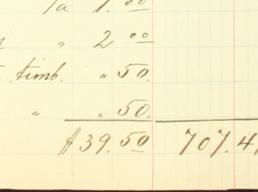 1.00
" 2.00
timb. " 50.
" " 50.
$39.50 707.4